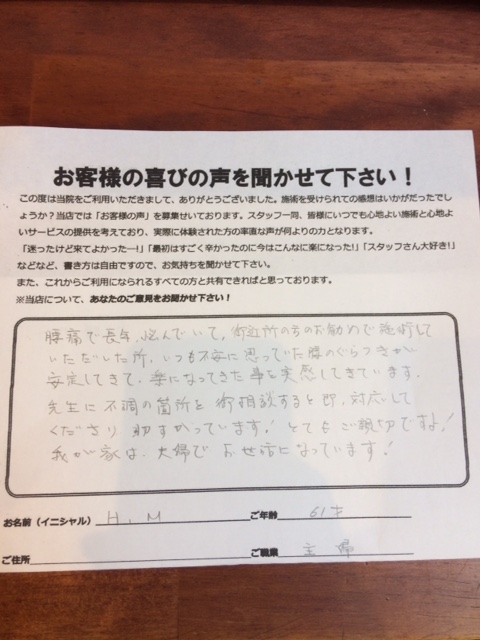 お客様の喜びの声を聞かせて下さい！
この度は当院をご利用いただきまして、ありがとうございました。施術を受けられての感想はいかがだったでし
ょうか？当店では「お客様の声」を募集せいております。スタッフ一同、皆様にいつでも心地よい施術と心地よ
いサービスの提供を考えており、実際に体験された方の率直な声が何よりの力となります。
「迷ったけど来てよかったー！」「最初はすごく辛かったのに今はこんなに楽になった！」「スタッフさん大好き！」
などなど、書き方は自由ですので、お気持ちを聞かせて下さい。
また、これからご利用になられるすべての方と共有できればと思っております。
※当店について、あなたのご意見をお聞かせ下さい！
腰痛で長年、悩んでいて、御近所の方のお勧めで施術して
いただいた所、いつも不安に思っていた腰のぐらつきが
安定してきて、楽になってきた事を実感してきています。
先生に不調の箇所を御相談すると即、対応して
くださり助すかっています！とてもご親切ですよ！
我が家は、夫婦でお世話になっています！
お名前（イニシャル） H．M ご年齢 61才
ご住所 ご職業 主婦